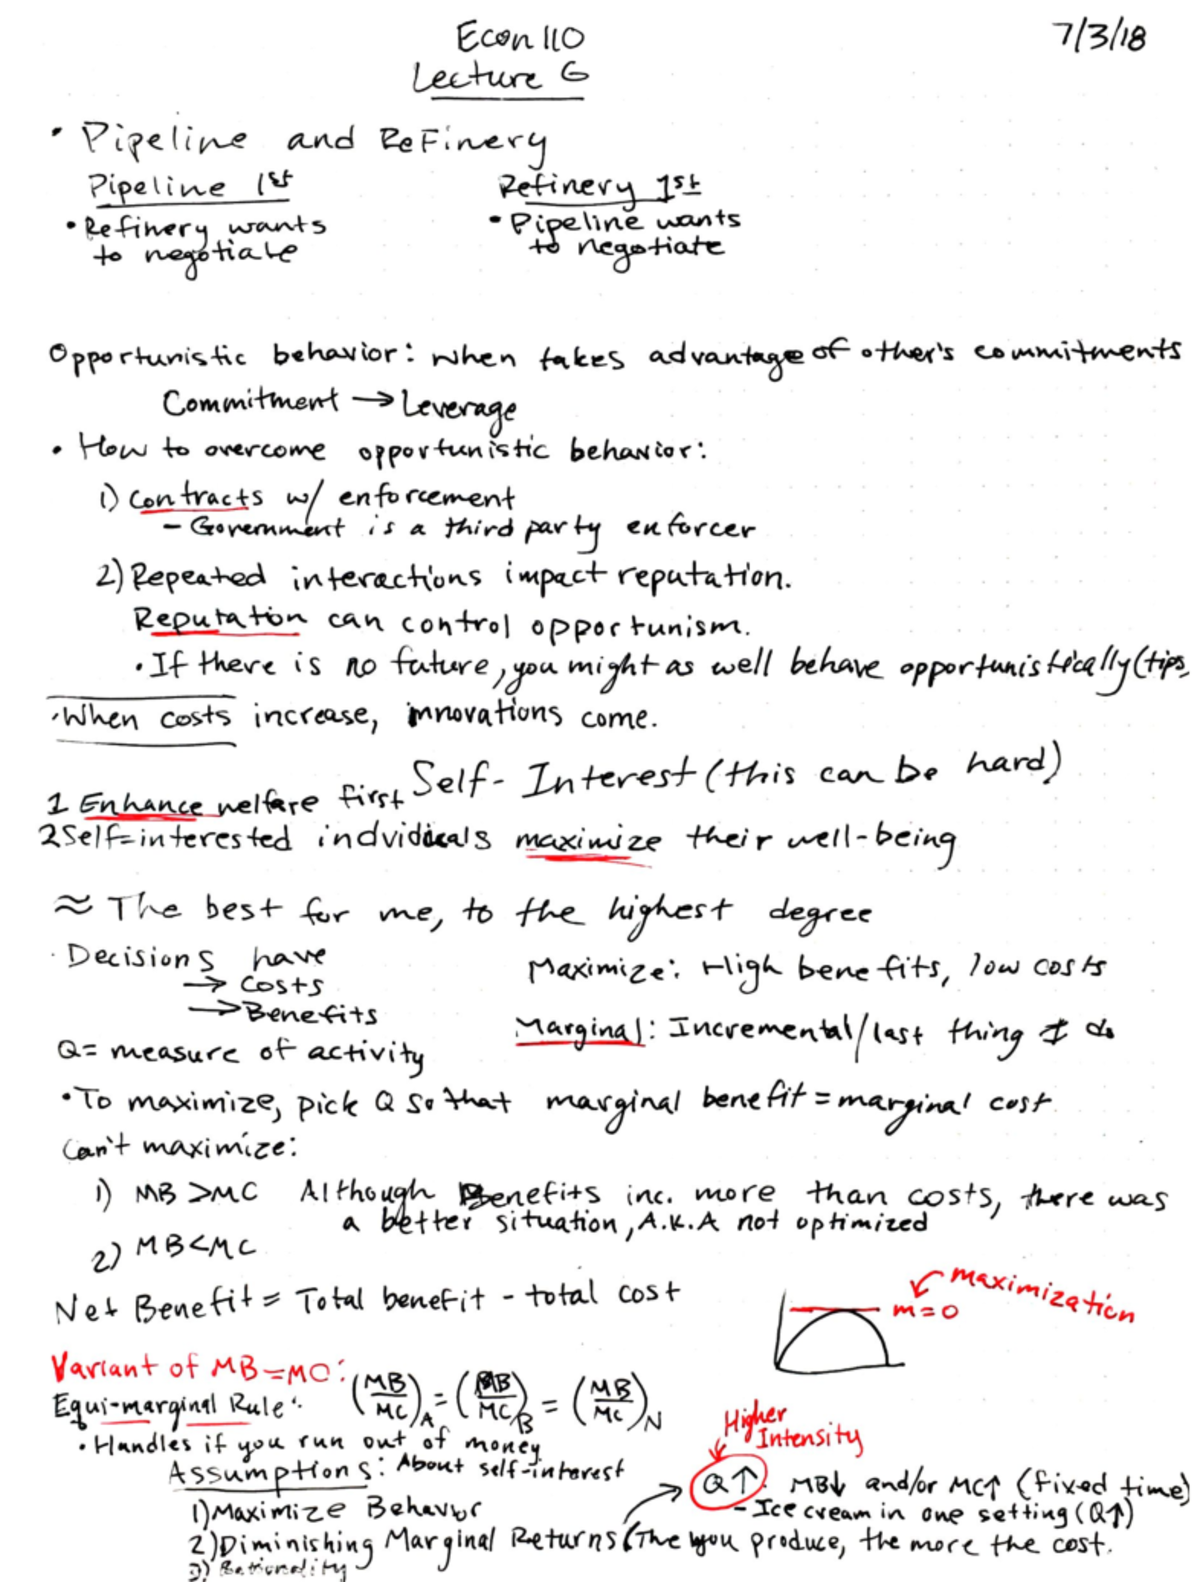 Econ 110
7/3/18
Lecture 6
• Pipeline and Refinery
Pipeline 1st
Refinery 1st
• Refinery wants
to negotiate
• Pipeline wants
to negotiate
Opportunistic behavior: when takes advantage of other's commitments
Commitment → Leverage
• How to overcome opportunistic behavior:
1) contracts w/ enforcement
- Government is a third party enforcer
2) Repeated interactions impact reputation.
Reputation can control opportunism.
• If there is no future, you might as well behave opportunistically (tips,
• When costs increase, innovations come.
Self-Interest (this can be hard)
1 Enhance welfare first
2 Self-interested individuals maximize their well-being
≈ The best for me, to the highest degree
• Decisions have
→ Costs
→ Benefits
Maximize: High benefits, low costs
Marginal: Incremental/last thing I do
Q = measure of activity
• To maximize, pick Q so that marginal benefit = marginal cost
Can't maximize:
1) MB > MC Although Benefits inc. more than costs, there was
a better situation, A.K.A not optimized
2) MB < MC
Net Benefit = Total benefit - total cost
maximization
m = 0
Variant of MB = MC:
Equi-marginal Rule: (MB/MC)A = (MB/MC)B = (MB/MC)N
• Handles if you run out of money
Higher
Intensity
Assumptions: About self-interest
Q↑: MB↓ and/or MC↑ (fixed time)
- Ice cream in one setting (Q↑)
1) Maximize Behavior
2) Diminishing Marginal Returns (The you produce, the more the cost.
3) Rationality